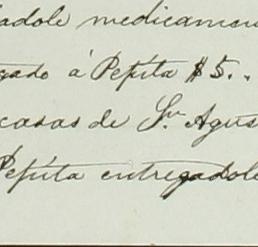 dole medicamen
gado á Pepita $5..
casas de Sn. Agus
Pepita entregadole